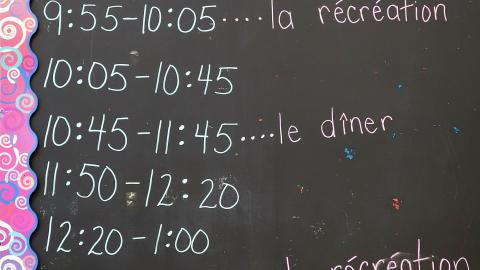 9:55-10:05....la récréation
10:05-10:45
10:45-11:45....le dîner
11:50-12:20
12:20-1:00
la récréation